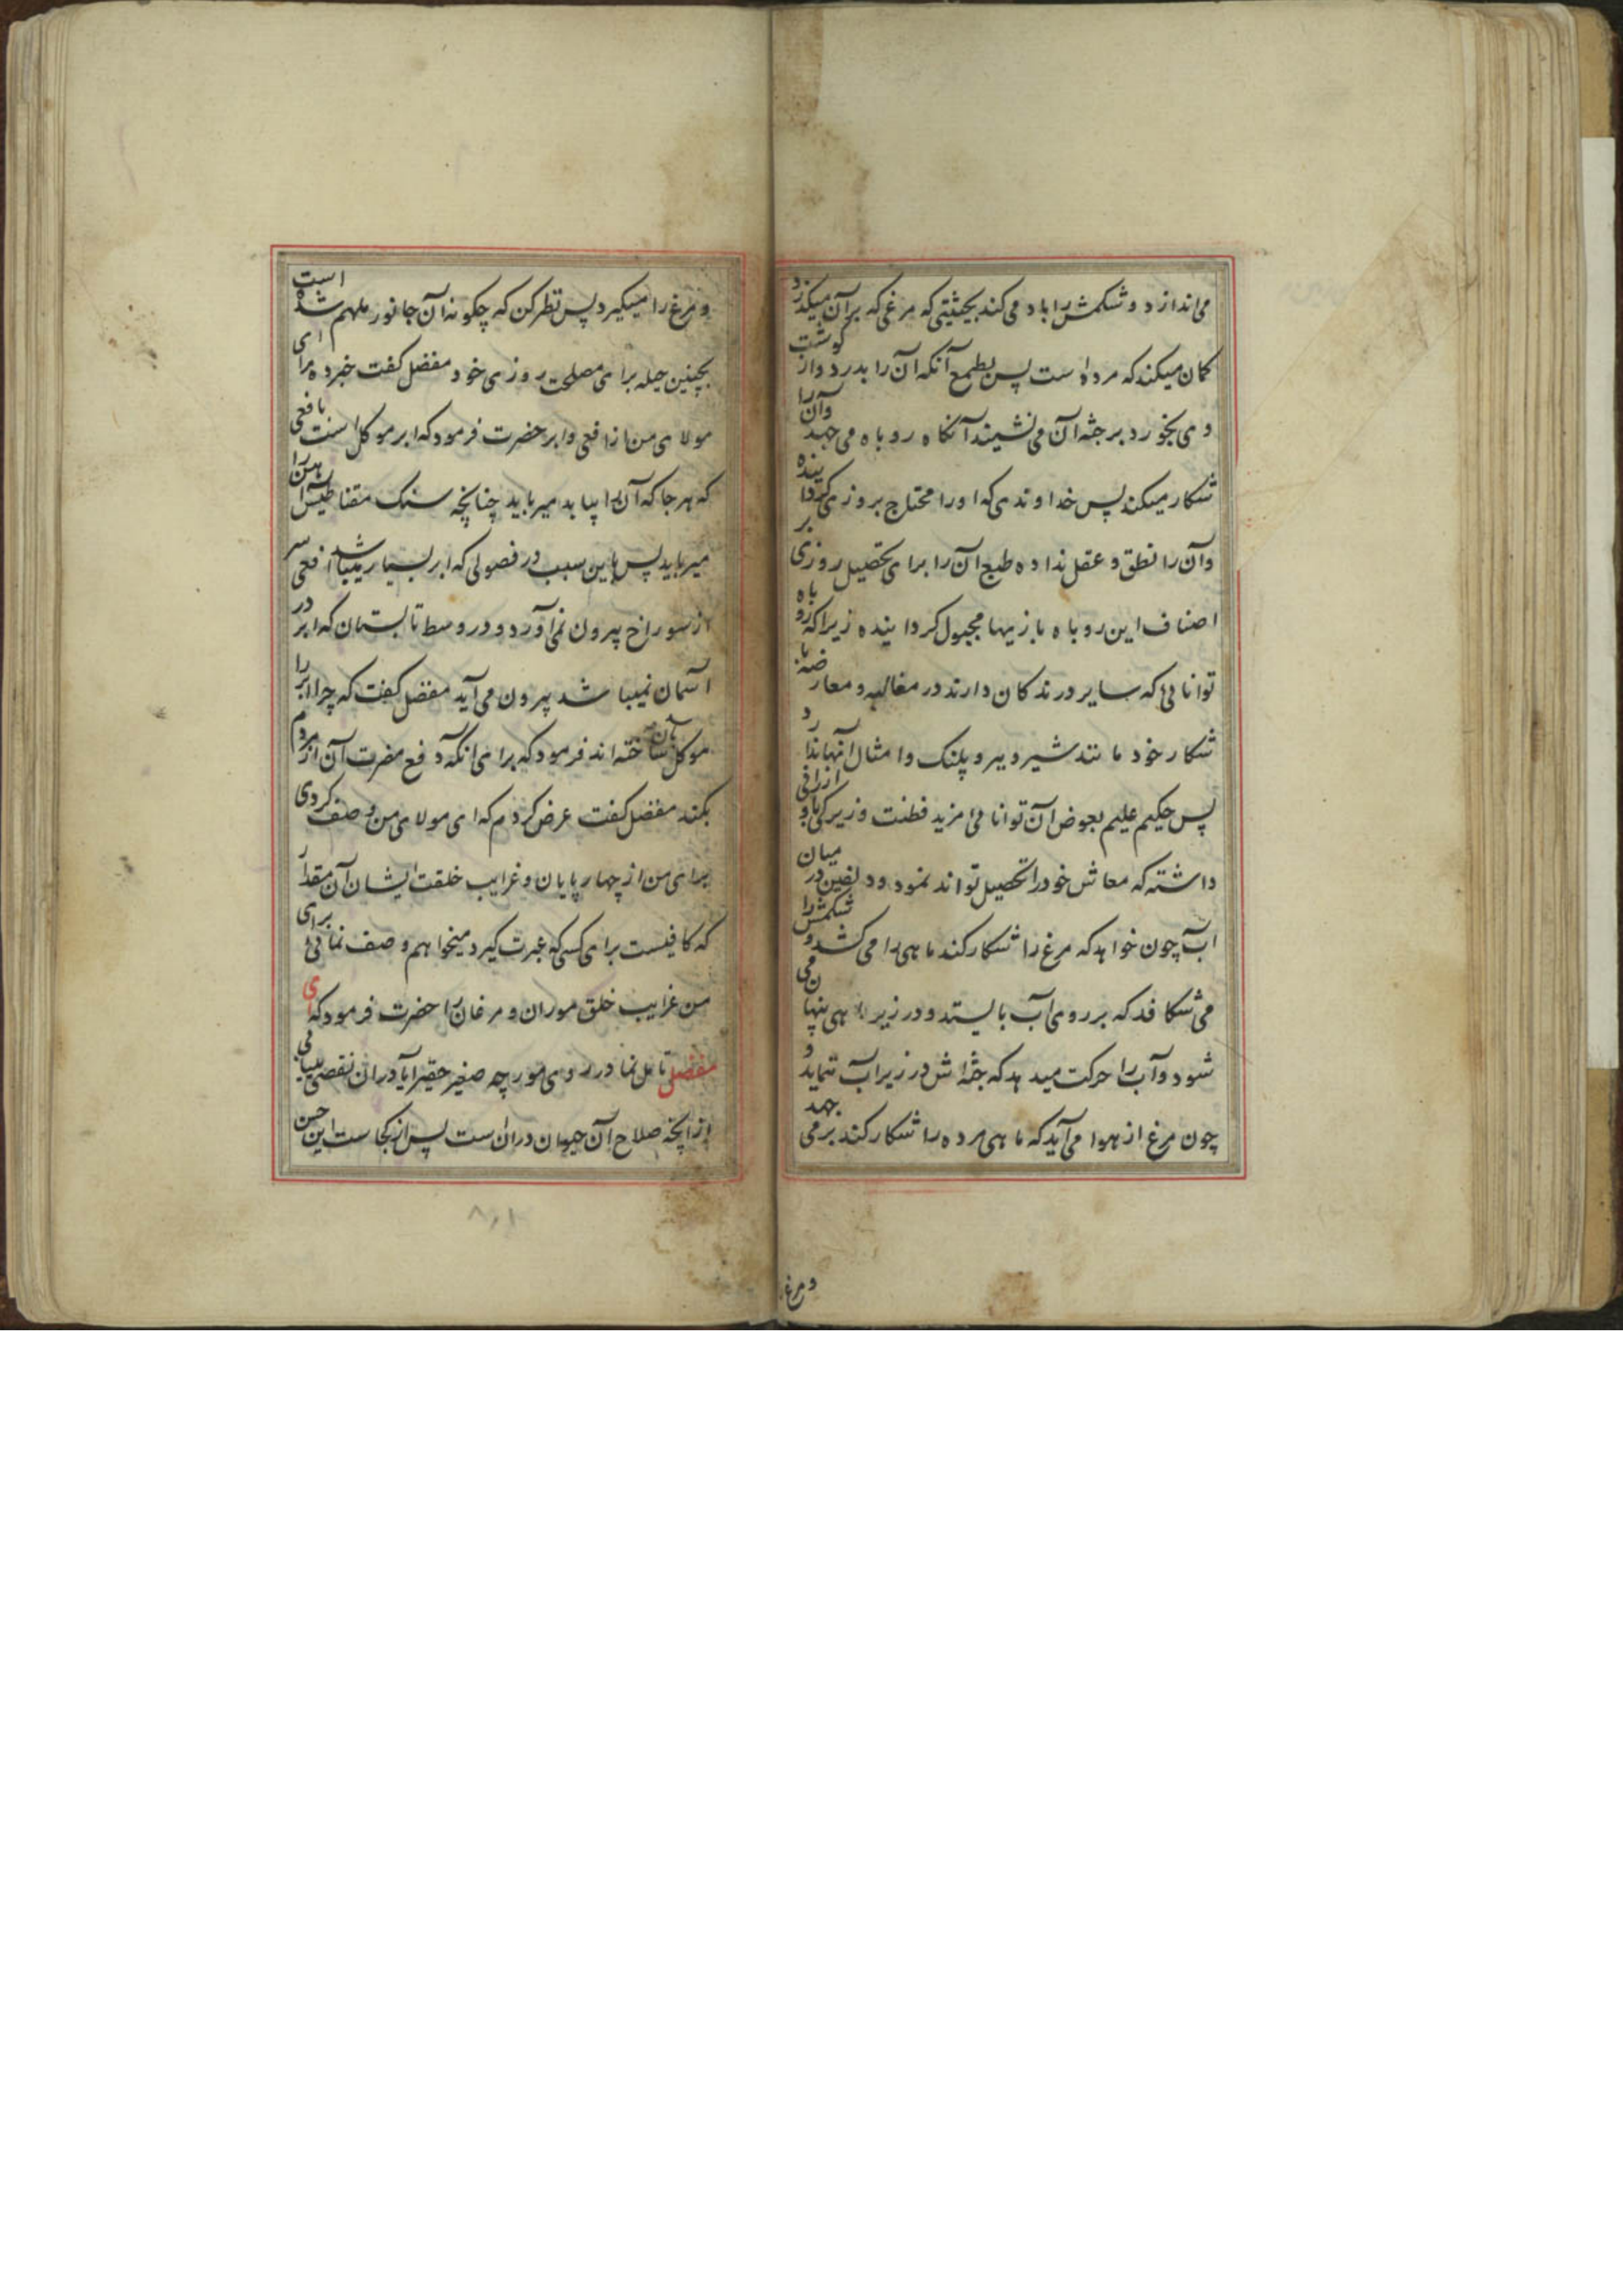 می‌اندازد و شکمش را باد می کند بحیثیتی که مرغی که بر آن میگذرد
کمان میکند که مرده است پس بطمع آنکه آن را بدرد و از گوشت
وی بخورد بر جثه آن می نشیند آنکاه روباه می جهد و آن را
شکار میکند پس خداوندی که او را محتاج بروزی گردانیده
و آن را نطق و عقل نداده طبع آن را برای تحصیل روزی بر
اصناف این روباه بازیها مجبول کردانیده زیرا که روباه
توانائی که سایر درندکان دارند در مغالبه و معارضه با
شکار خود مانند شیر و ببر و پلنک و امثال آنها ندارد
پس حکیم علیم بعوض آن توانائی مزید فطنت و زیرکی باو ارزانی
داشته که معاش خود را تحصیل تواند نمود و دلفین در میان
آب چون خواهد که مرغ را شکار کند ماهی را می کشد و شکمش را
می شکافد که بر روی آب بایستد و در زیر ماهی پنهان می
شود و آب را حرکت میدهد که جثه اش در زیر آب ننماید و
چون مرغ از هوا می آید که ماهی مرده را شکار کند بر می جهد
و مرغ
و مرغ را میکیرد پس نظر کن که چکونه آن جانور ملهم شده است
بچنین حیله برای مصلحت روزی خود مفضل کفت خبر ده مرا ای
مولای من از افعی و ابر حضرت فرمود که ابر موکل است با فعی
که هر جا که آن را بیابد میرباید چنانچه سنک مقناطیس آهن را
میرباید پس باین سبب در فصولی که ابر بسیار میباشد افعی سر
از سوراخ بیرون نمی آورد و در وسط تابستان که ابر در
آسمان نمیباشد بیرون می آید مفضل کفت که چرا ابر را
موکل بآن ساخته اند فرمود که برای آنکه دفع مضرت آن از مردم
بکند مفضل کفت عرض کردم که ای مولای من وصف کردی
برای من از چهارپایان و غرایب خلقت ایشان آن مقدار
که کافیست برای کسی که عبرت کیرد میخواهم وصف نمائی برای
من غرایب خلق موران و مرغان را حضرت فرمود که ای
مفضل تامل نما در روی مورچه صغیر حقیر آیا در ان نقصی میابی
از آنچه صلاح آن حیوان در ان است پس از کجاست این حسن
۸۰۱